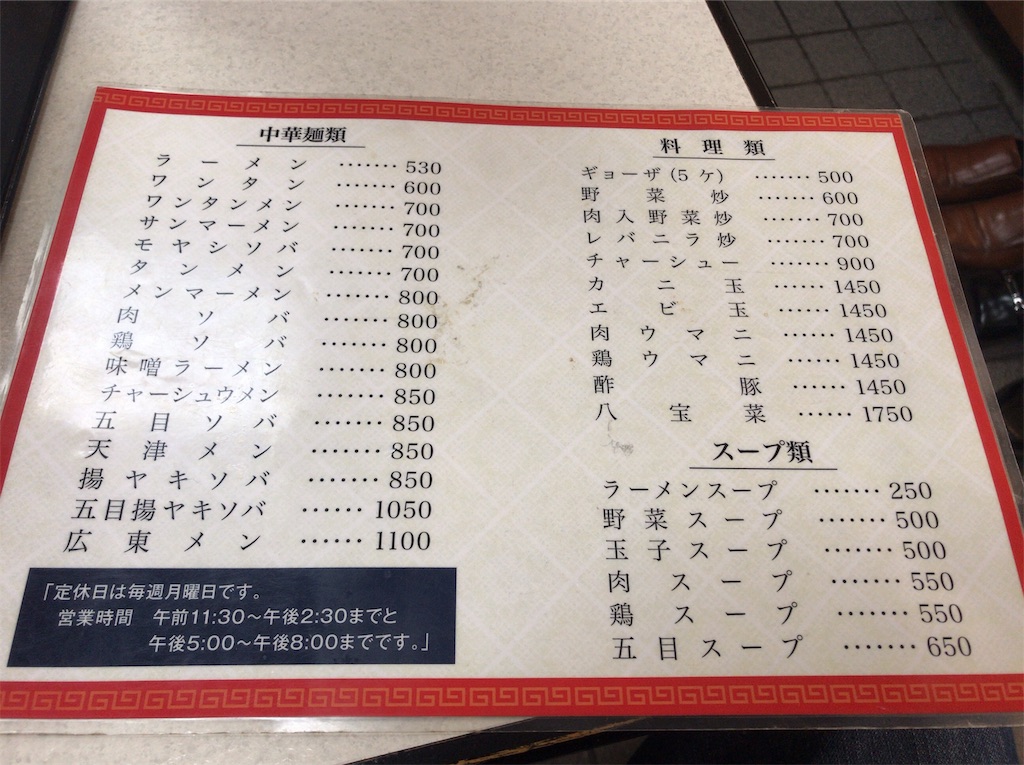 中華麺類
ラーメン ······· 530
ワンタン ······· 600
ワンタンメン ······· 700
サンマーメン ······· 700
モヤシソバ ······· 700
タンメン ······· 700
メンマーメン ······· 800
肉ソバ ······· 800
鶏ソバ ······· 800
味噌ラーメン ······· 800
チャーシュウメン ······· 850
五目ソバ ······· 850
天津メン ······· 850
揚ヤキソバ ······· 850
五目揚ヤキソバ ······ 1050
広東メン ······ 1100
「定休日は毎週月曜日です。
営業時間 午前11:30～午後2:30までと
午後5:00～午後8:00までです。」
料理類
ギョーザ(5ケ) ······· 500
野菜炒 ······· 600
肉入野菜炒 ······· 700
レバニラ炒 ······· 700
チャーシュー ······· 900
カニ玉 ······ 1450
エビ玉 ······ 1450
肉ウマニ ······ 1450
鶏ウマニ ······ 1450
酢豚 ······ 1450
八宝菜 ······ 1750
スープ類
ラーメンスープ ······· 250
野菜スープ ······· 500
玉子スープ ······· 500
肉スープ ······· 550
鶏スープ ······· 550
五目スープ ······· 650